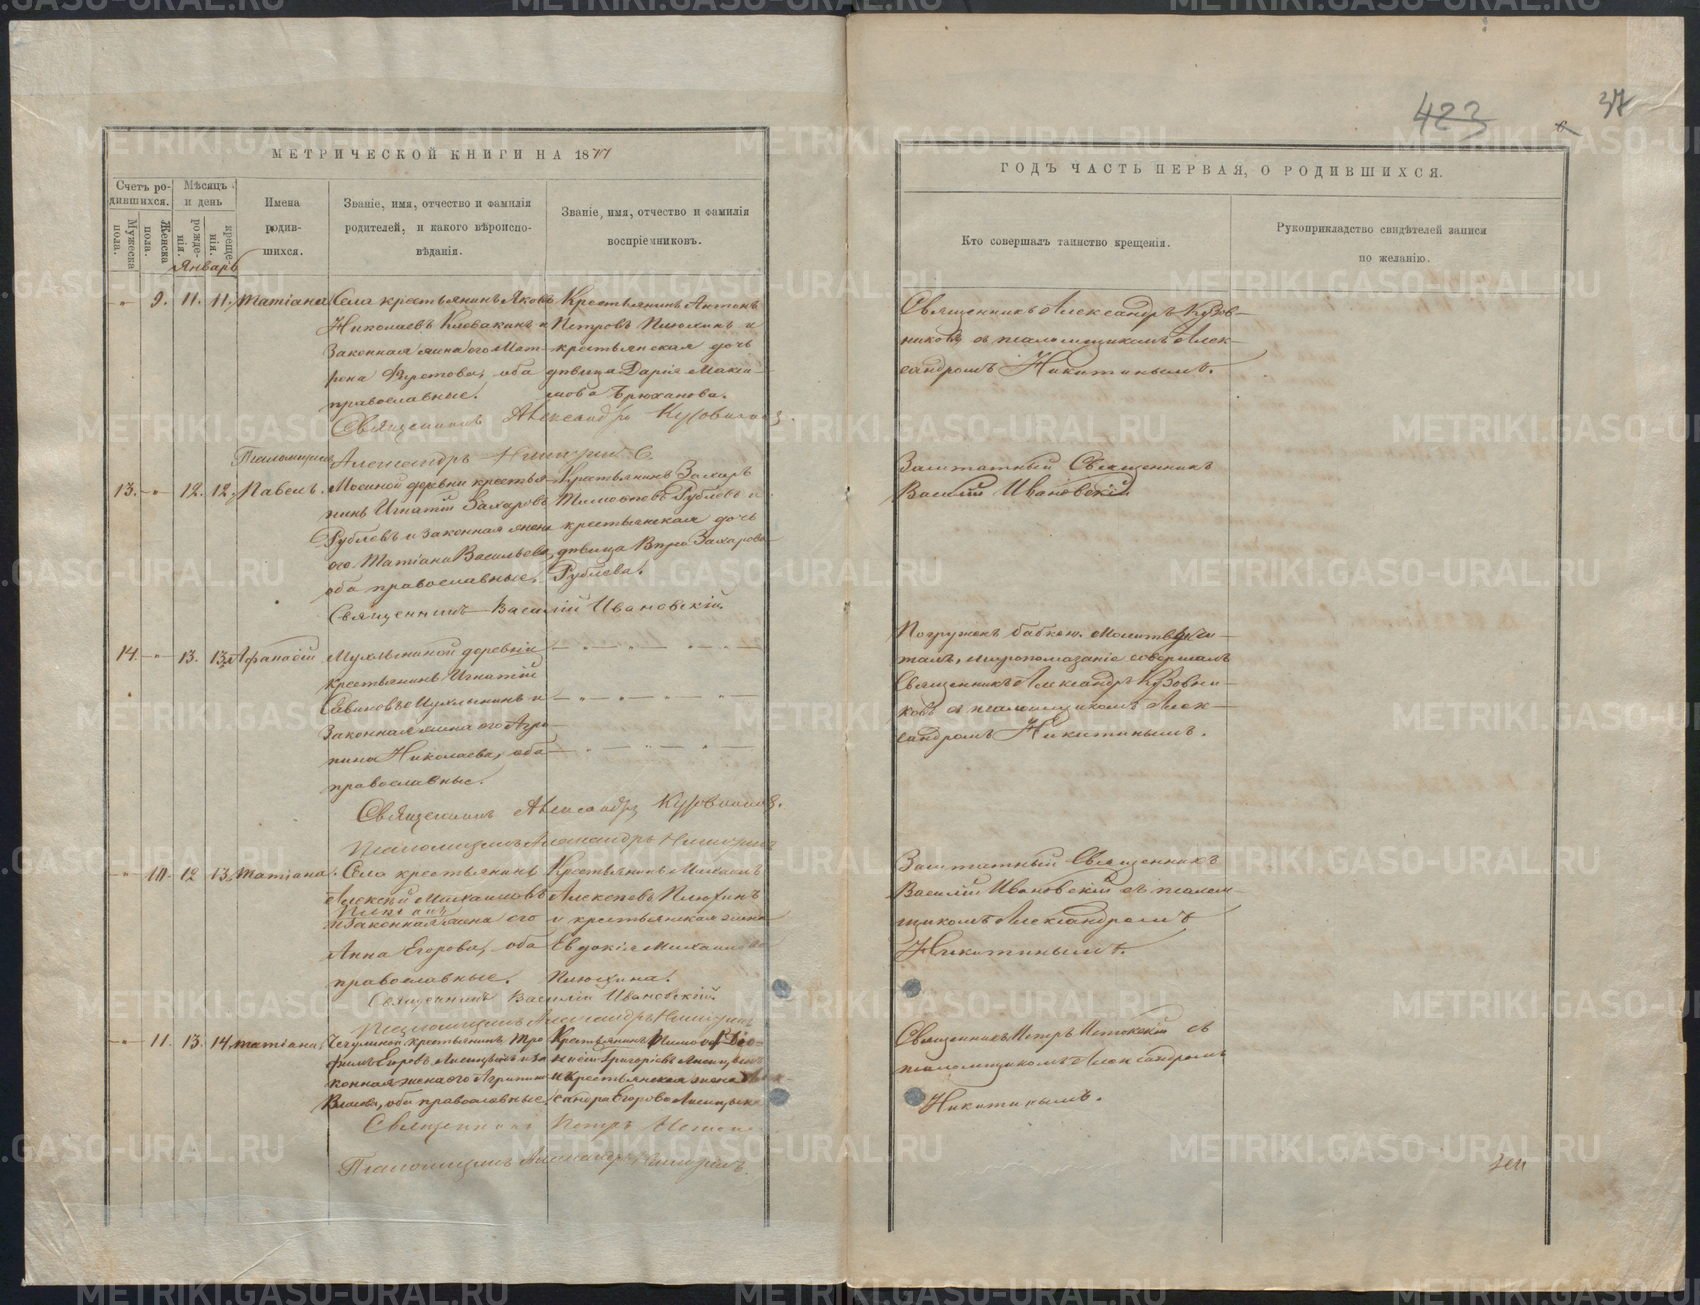 423
37
МЕТРИЧЕСКОЙ КНИГИ НА 1877
ГОДЪ ЧАСТЬ ПЕРВАЯ, О РОДИВШИХСЯ.
Счетъ родившихся.
Мужеска пола.
Женска пола.
Мѣсяцъ и день
рожденія.
крещенія.
Имена родившихся.
Званіе, имя, отчество и фамилія
родителей, и какого вѣроиспо-
вѣданія.
Званіе, имя, отчество и фамилія
воспріемниковъ.
Кто совершалъ таинство крещенія.
Рукоприкладство свидѣтелей записи
по желанію.
Январь
9. 11. 11. Татіана
Села крестьянинъ Яковъ
Николаевъ и
законная жена его Мат-
рона оба
православные.
Крестьянинъ Антонъ
Петровъ Плюхинъ и
крестьянская дочь
дѣвица Дарія Макси-
мова Брюханова.
Священникъ Александръ Кузов-
никовъ съ псаломщикомъ Алек-
сандромъ Никитинымъ.
Священникъ Александръ Кузовниковъ
Псаломщикъ Александръ Никитинъ
13. 12. 12. Павелъ.
деревни крестья-
нинъ Игнатій Захаровъ
Рублевъ и законная жена
его Татіана Васильева,
оба православные.
Крестьянинъ Захаръ
Тимоѳеевъ Рублевъ и
крестьянская дочь
дѣвица Вѣра Захарова
Рублева.
Заштатный Священникъ
Василій Ивановскій
Священникъ Василій Ивановскій
14. 13. 13. Аѳанасій
деревни
крестьянинъ Игнатій
Савиновъ и
законная жена его Агри-
пина Николаева, оба
православные.
Погруженъ бабкою. Молитвы чи-
талъ, миропомазаніе совершалъ
Священникъ Александръ Кузовни-
ковъ съ псаломщикомъ Алек-
сандромъ Никитинымъ.
Священникъ Александръ Кузовниковъ.
Псаломщикъ Александръ Никитинъ
10. 12. 13. Татіана.
Села крестьянинъ
Алексѣй Михайловъ
Плюхинъ
и законная жена его
Анна Егорова, оба
православные.
Крестьянинъ Михаилъ
Алексѣевъ Плюхинъ
и крестьянская жена
Евдокія Михайлова
Плюхина.
Заштатный Священникъ
Василій Ивановскій съ псалом-
щикомъ Александромъ
Никитинымъ.
Священникъ Василій Ивановскій.
Псаломщикъ Александръ Никитинъ
11. 13. 14. Татіана.
крестьянинъ Тро-
фимъ Егоровъ и за-
конная жена его Агрипина
Власова, оба православные
Крестьянинъ
Григорьевъ
и крестьянская жена
Егорова
Священникъ Петръ съ
псаломщикомъ Александромъ
Никитинымъ.
Священникъ Петръ
Псаломщикъ Александръ Никитинъ.
METRIKI.GASO-URAL.RU